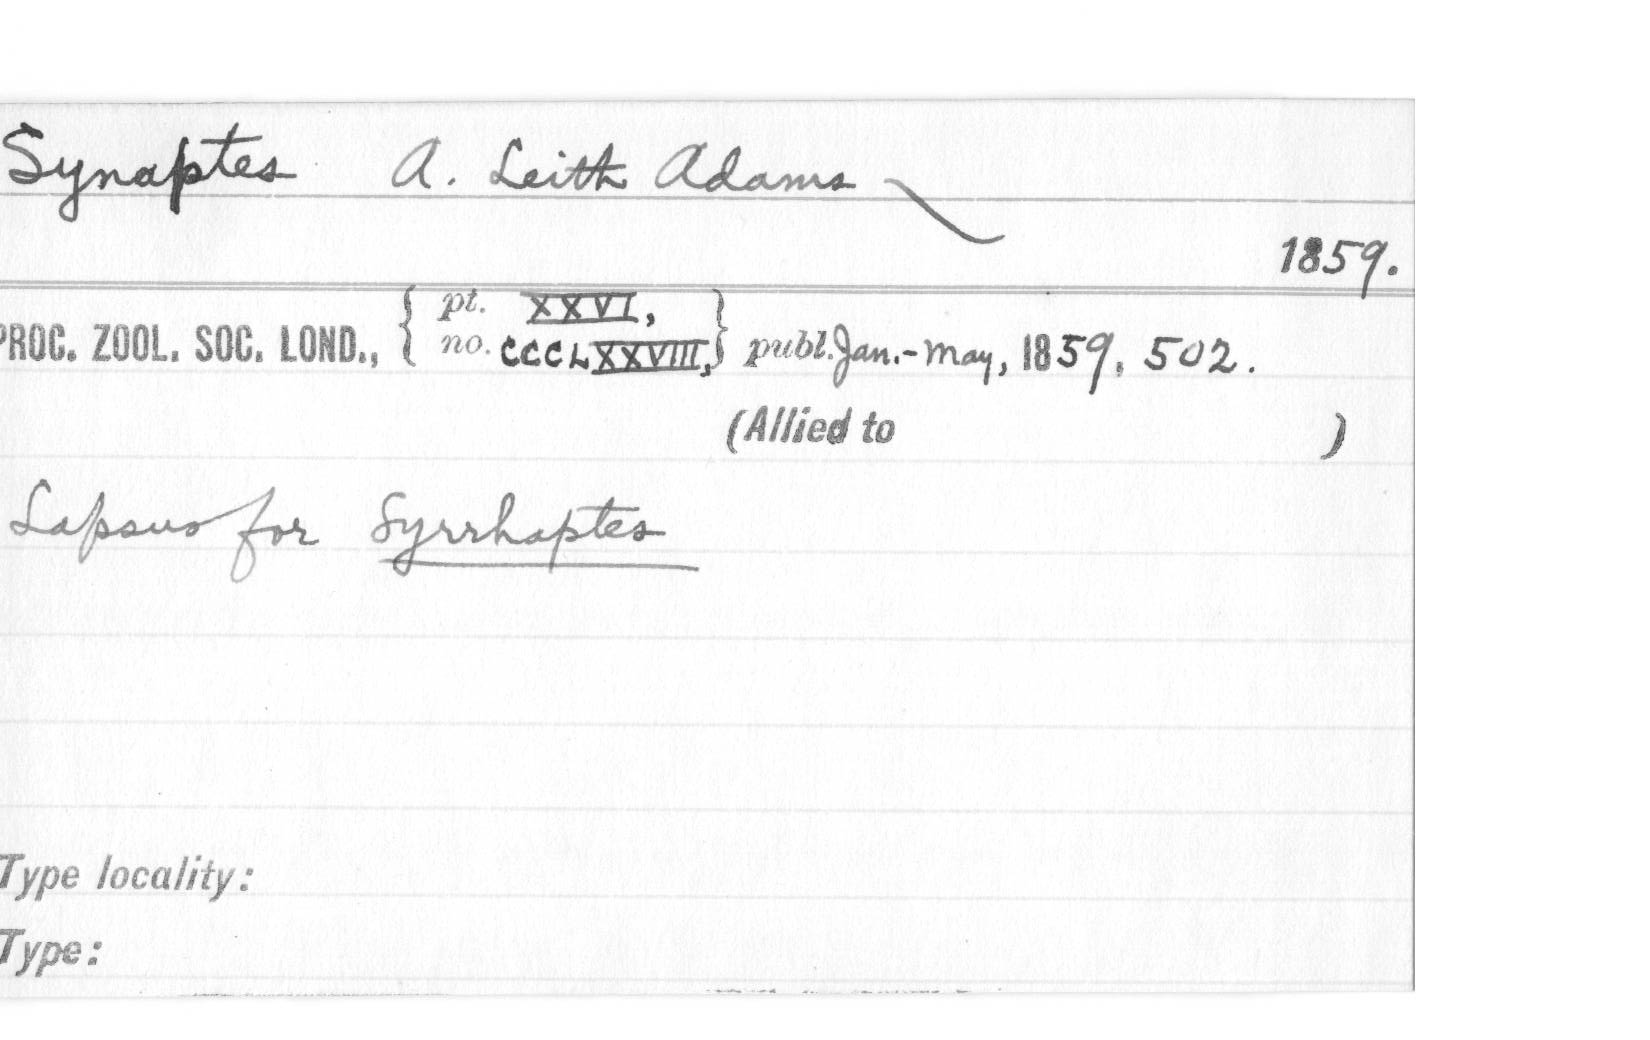 Synaptes A. Leith Adams
1859.
PROC. ZOOL. SOC. LOND., { pt. XXVI, no. CCCLXXVIII, } publ. Jan.-May, 1859, 502.
(Allied to )
Lapsus for Syrrhaptes
Type locality:
Type: